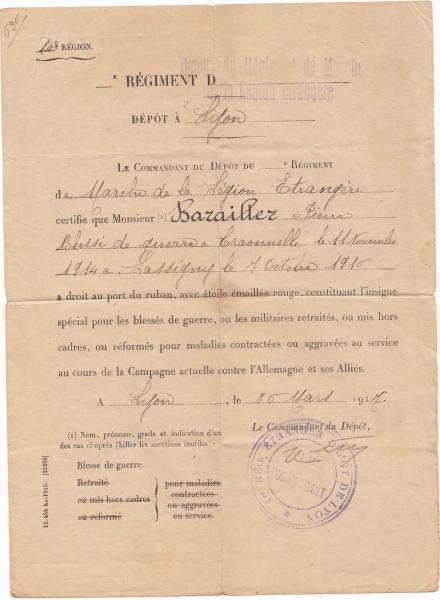 696
14e RÉGION.
Dépôt du Régiment de Marche
de la Légion Etrangère
e RÉGIMENT D
DÉPÔT À Lyon
LE COMMANDANT DU DÉPÔT DU e RÉGIMENT
de Marche de la Légion Etrangère
certifie que Monsieur (1) Bazaillez Pierre
Blessé de guerre a Craonnelle le 11 Novembre
1914 a Lassigny le 7 Octobre 1916
a droit au port du ruban, avec étoile émaillée rouge, constituant l'insigne
spécial pour les blessés de guerre, ou les militaires retraités, ou mis hors
cadres, ou réformés pour maladies contractées ou aggravées au service
au cours de la Campagne actuelle contre l'Allemagne et ses Alliés.
A Lyon, le 26 Mars 1917.
Le Commandant du Dépôt,
(1) Nom, prénoms, grade et indication d'un
des cas ci-après (biffer les mentions inutiles) :
Blessé de guerre.
Retraité
ou mis hors cadres
ou réformé
pour maladies
contractées
ou aggravées
au service.
1er RÉG. ETRANGER DÉPÔT DE LYON
COMMANDANT
12-455 bis-1916. [21265]